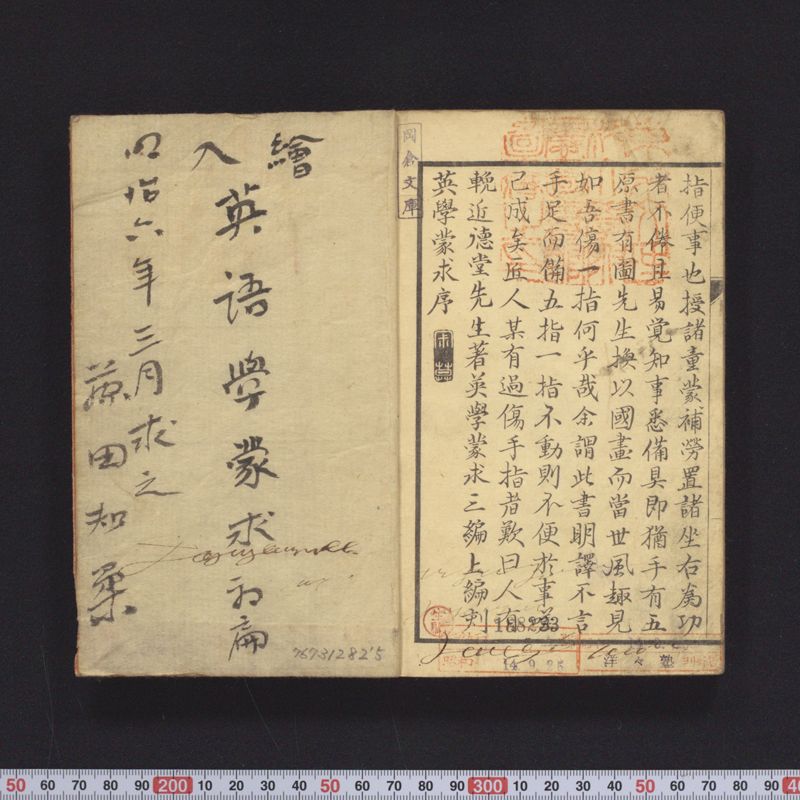 英學蒙求序
輓近德堂先生著英學蒙求三編上編刻
已成矣丘人某有過傷手指者歎曰人有
手足而備五指一指不動則不便於事
如吾傷一指何乎哉余謂此書明譯不言
原書有圖先生換以國畫而當世風趣見
者不倦且易覚知事悉備具即猶手有五
指便事也授諸童蒙補勞置諸坐右為功
岡倉文庫
14.9.25
洋々塾
繪
入
英語學蒙求初編
明治六年三月求之
田知
76731282'5
50 60 70 80 90 200 10 20 30 40 50 60 70 80 90 300 10 20 30 40 50 60 70 80 90